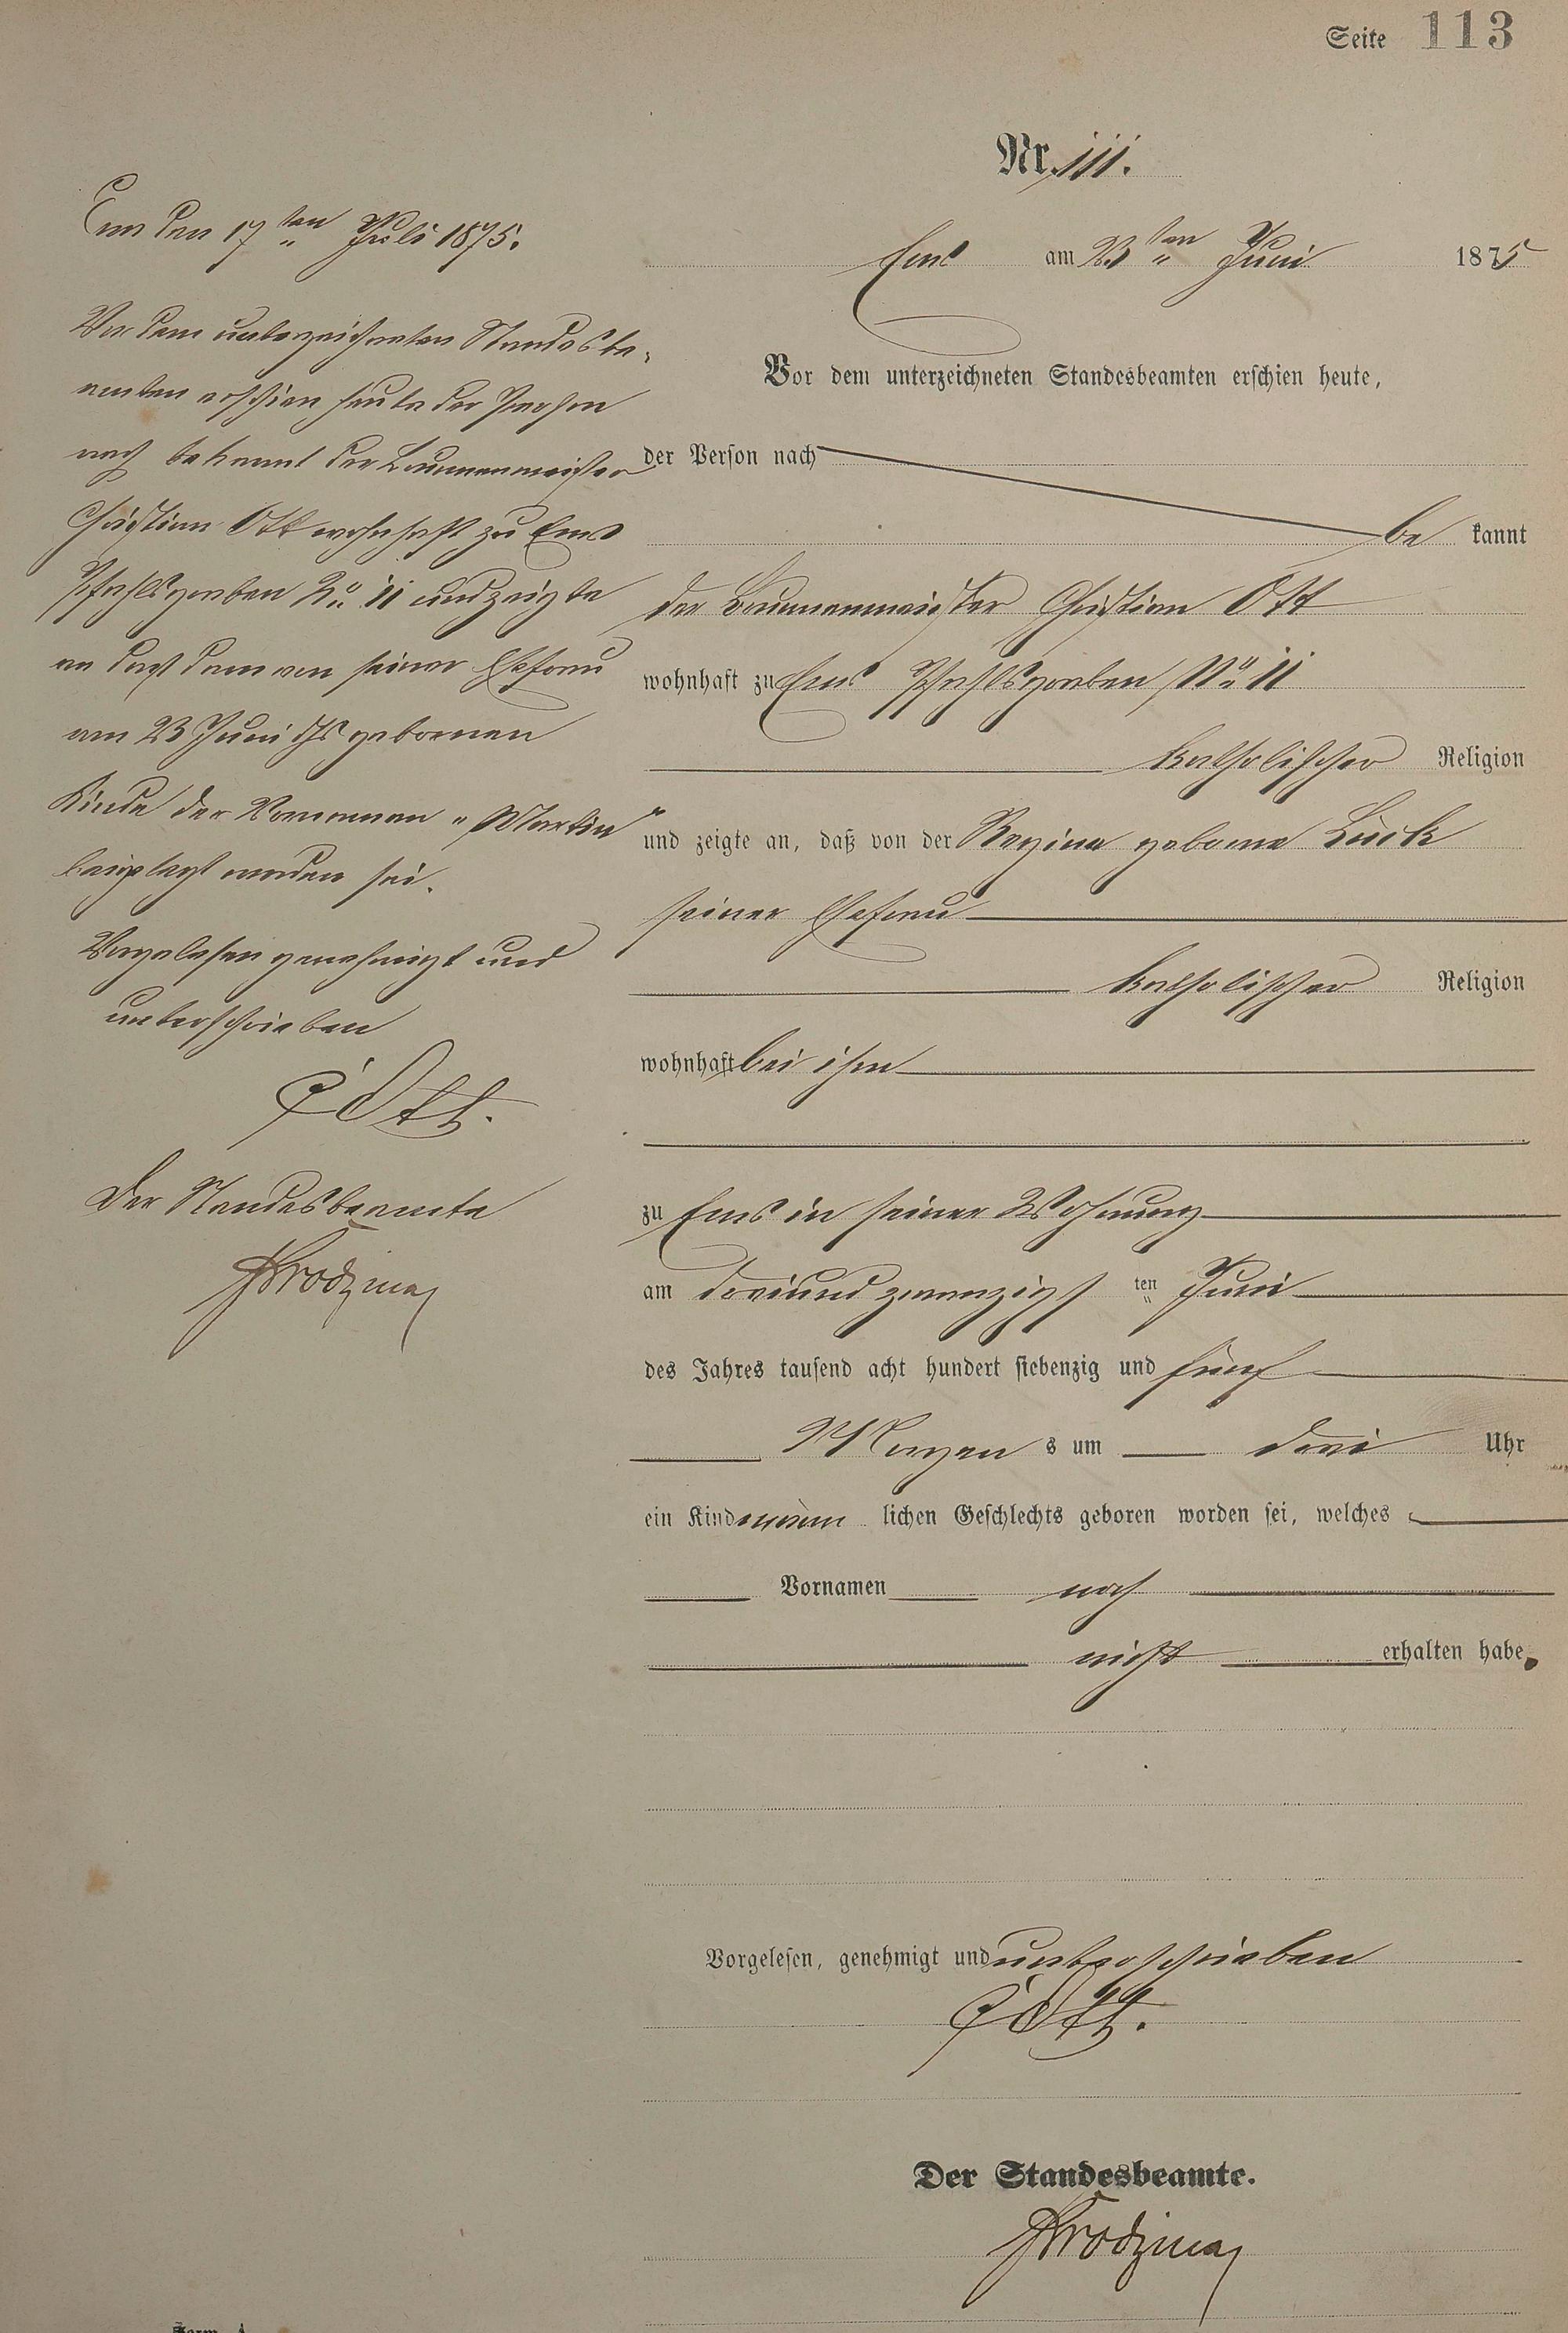 Seite 113
Nr. 111.
Ems am 23 ten Juni 1875
Vor dem unterzeichneten Standesbeamten erschien heute,
der Person nach
be kannt
der Brunnenmeister Christian Ott
wohnhaft zu Ems Pfahlgraben No 11
katholischer Religion
und zeigte an, daß von der Regina geborne Lück
seiner Ehefrau
katholischer Religion
wohnhaft bei ihm
zu Ems in seiner Wohnung
am dreiundzwanzigst ten Juni
des Jahres tausend acht hundert siebenzig und fünf
Morgen s um drei Uhr
ein Kind männ lichen Geschlechts geboren worden sei, welches
Vornamen noch
nicht erhalten habe.
Vorgelesen, genehmigt und unterschrieben
C Ott.
Der Standesbeamte.
Ems den 17 ten Juli 1875.
Vor dem unterzeichneten Standesbe-
amten erschien heute der Person
nach bekannt der Brunnenmeister
Christian Ott wohnhaft zu Ems
Pfahlgraben No 11 und zeigte
an daß dem von seiner Ehefrau
am 23 Juni ds geborenen
Kinde der Vornamen „Martin"
beigelegt worden sei.
Vorgelesen genehmigt und
unterschrieben
C Ott.
Der Standesbeamte